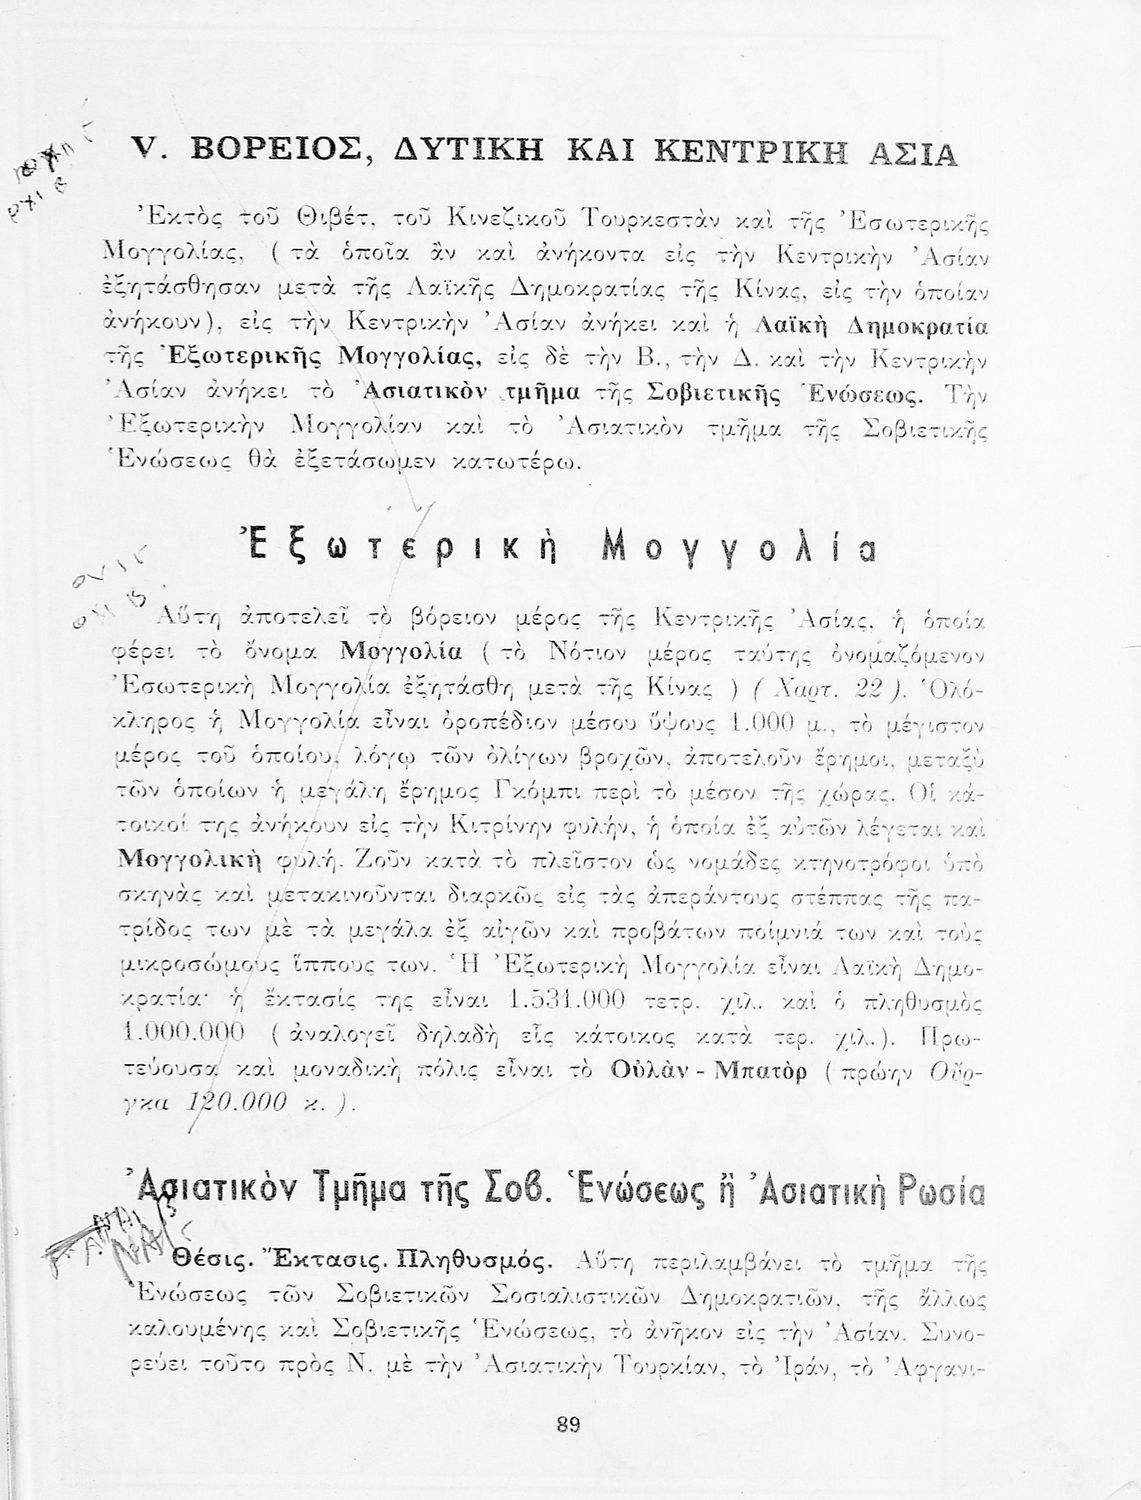 V. ΒΟΡΕΙΟΣ, ΔΥΤΙΚΗ ΚΑΙ ΚΕΝΤΡΙΚΗ ΑΣΙΑ
Ἐκτὸς τοῦ Θιβέτ, τοῦ Κινεζικοῦ Τουρκεστὰν καὶ τῆς Ἐσωτερικῆς
Μογγολίας, ( τὰ ὁποῖα ἂν καὶ ἀνήκοντα εἰς τὴν Κεντρικὴν Ἀσίαν
ἐξητάσθησαν μετὰ τῆς Λαϊκῆς Δημοκρατίας τῆς Κίνας, εἰς τὴν ὁποίαν
ἀνήκουν), εἰς τὴν Κεντρικὴν Ἀσίαν ἀνήκει καὶ ἡ Λαϊκὴ Δημοκρατία
τῆς Ἐξωτερικῆς Μογγολίας, εἰς δὲ τὴν Β., τὴν Δ. καὶ τὴν Κεντρικὴν
Ἀσίαν ἀνήκει τὸ Ἀσιατικὸν τμῆμα τῆς Σοβιετικῆς Ἑνώσεως. Τὴν
Ἐξωτερικὴν Μογγολίαν καὶ τὸ Ἀσιατικὸν τμῆμα τῆς Σοβιετικῆς
Ἑνώσεως θὰ ἐξετάσωμεν κατωτέρω.
Ἐξωτερικὴ Μογγολία
Αὕτη ἀποτελεῖ τὸ βόρειον μέρος τῆς Κεντρικῆς Ἀσίας, ἡ ὁποία
φέρει τὸ ὄνομα Μογγολία ( τὸ Νότιον μέρος ταύτης ὀνομαζόμενον
Ἐσωτερικὴ Μογγολία ἐξητάσθη μετὰ τῆς Κίνας ) ( Χαρτ. 22 ). Ὁλό-
κληρος ἡ Μογγολία εἶναι ὀροπέδιον μέσου ὕψους 1.000 μ., τὸ μέγιστον
μέρος τοῦ ὁποίου, λόγῳ τῶν ὀλίγων βροχῶν, ἀποτελοῦν ἔρημοι, μεταξὺ
τῶν ὁποίων ἡ μεγάλη ἔρημος Γκόμπι περὶ τὸ μέσον τῆς χώρας. Οἱ κά-
τοικοί της ἀνήκουν εἰς τὴν Κιτρίνην φυλήν, ἡ ὁποία ἐξ αὐτῶν λέγεται καὶ
Μογγολικὴ φυλή. Ζοῦν κατὰ τὸ πλεῖστον ὡς νομάδες κτηνοτρόφοι ὑπὸ
σκηνὰς καὶ μετακινοῦνται διαρκῶς εἰς τὰς ἀπεράντους στέππας τῆς πα-
τρίδος των μὲ τὰ μεγάλα ἐξ αἰγῶν καὶ προβάτων ποίμνιά των καὶ τοὺς
μικροσώμους ἵππους των. Ἡ Ἐξωτερικὴ Μογγολία εἶναι Λαϊκὴ Δημο-
κρατία· ἡ ἔκτασίς της εἶναι 1.531.000 τετρ. χιλ. καὶ ὁ πληθυσμὸς
1.000.000 ( ἀναλογεῖ δηλαδὴ εἷς κάτοικος κατὰ τερ. χιλ.). Πρω-
τεύουσα καὶ μοναδικὴ πόλις εἶναι τὸ Οὐλὰν - Μπατὸρ ( πρώην Οὔρ-
γκα 120.000 κ. ).
Ἀσιατικὸν Τμῆμα τῆς Σοβ. Ἑνώσεως ἢ Ἀσιατικὴ Ρωσία
Θέσις. Ἔκτασις. Πληθυσμός. Αὕτη περιλαμβάνει τὸ τμῆμα τῆς
Ἑνώσεως τῶν Σοβιετικῶν Σοσιαλιστικῶν Δημοκρατιῶν, τῆς ἄλλως
καλουμένης καὶ Σοβιετικῆς Ἑνώσεως, τὸ ἀνῆκον εἰς τὴν Ἀσίαν. Συνο-
ρεύει τοῦτο πρὸς Ν. μὲ τὴν Ἀσιατικὴν Τουρκίαν, τὸ Ἰράν, τὸ Ἀφγανι-
89